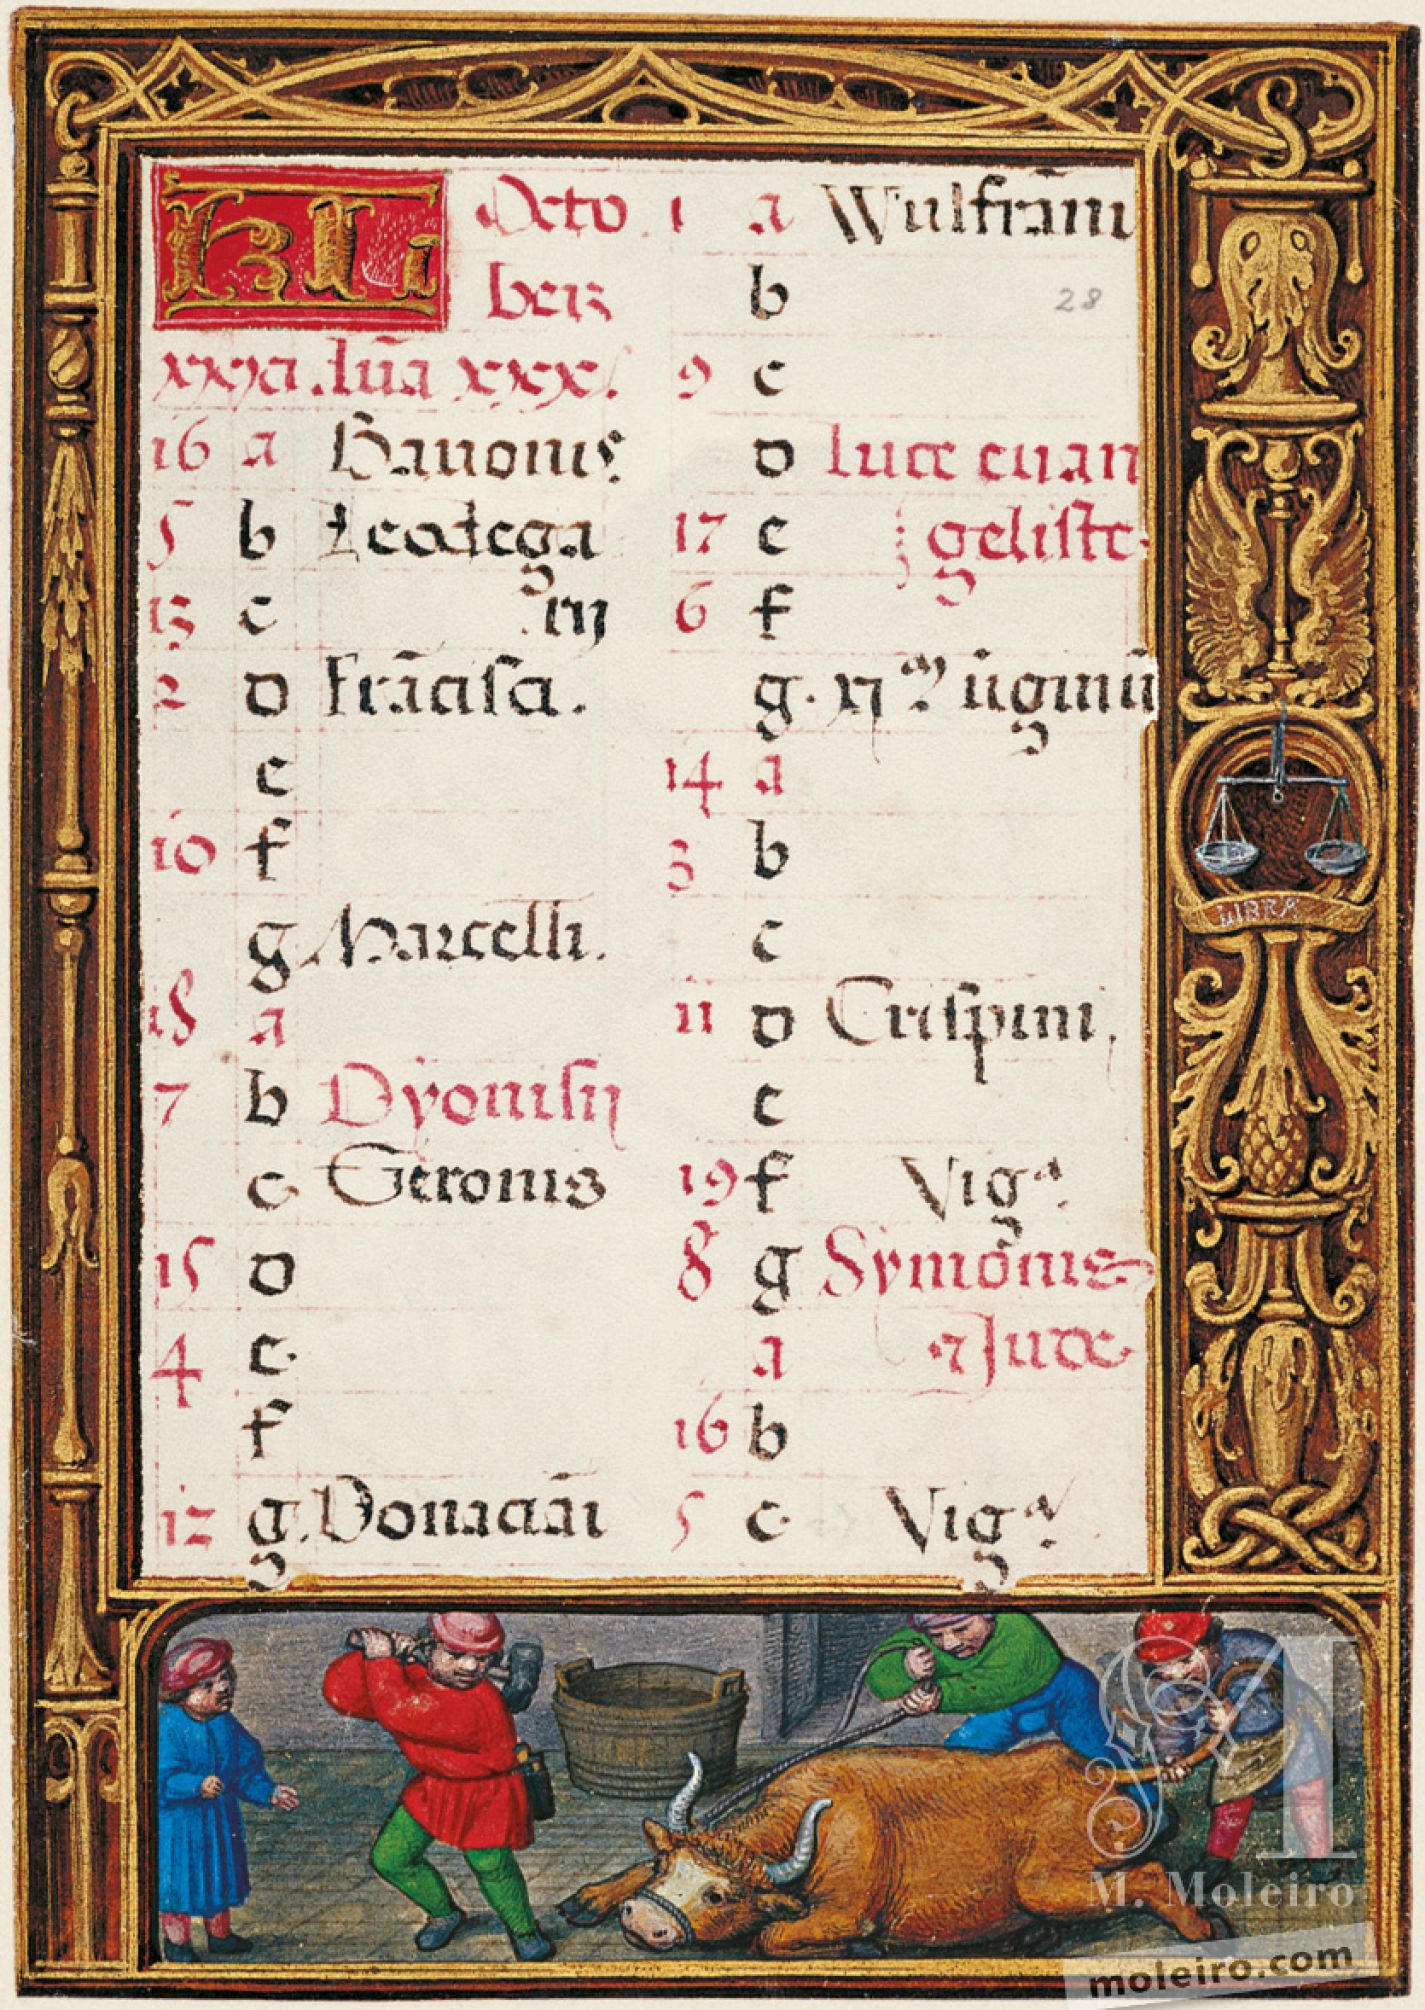 KL Octo
ber
xxxi. lūa xxx.
16 a Bauonis
5 b Leodega
13 c rij
2 D Frācisci.
e
10 f
g Marcelli.
18 a
7 b Dyonisij
c Gereonis
15 D
4 e
f
12 g Donaciāi
1 a Wulfrāni
b 28
9 c
D Luce euan
17 e geliste
6 f
g xi m v̄ginū
14 a
3 b
c
11 D Crispini.
e
19 f Vigᵃ.
8 g Symonis
a et Jude
16 b
5 c Vigᵃ
LIBRA
M. Moleiro
moleiro.com